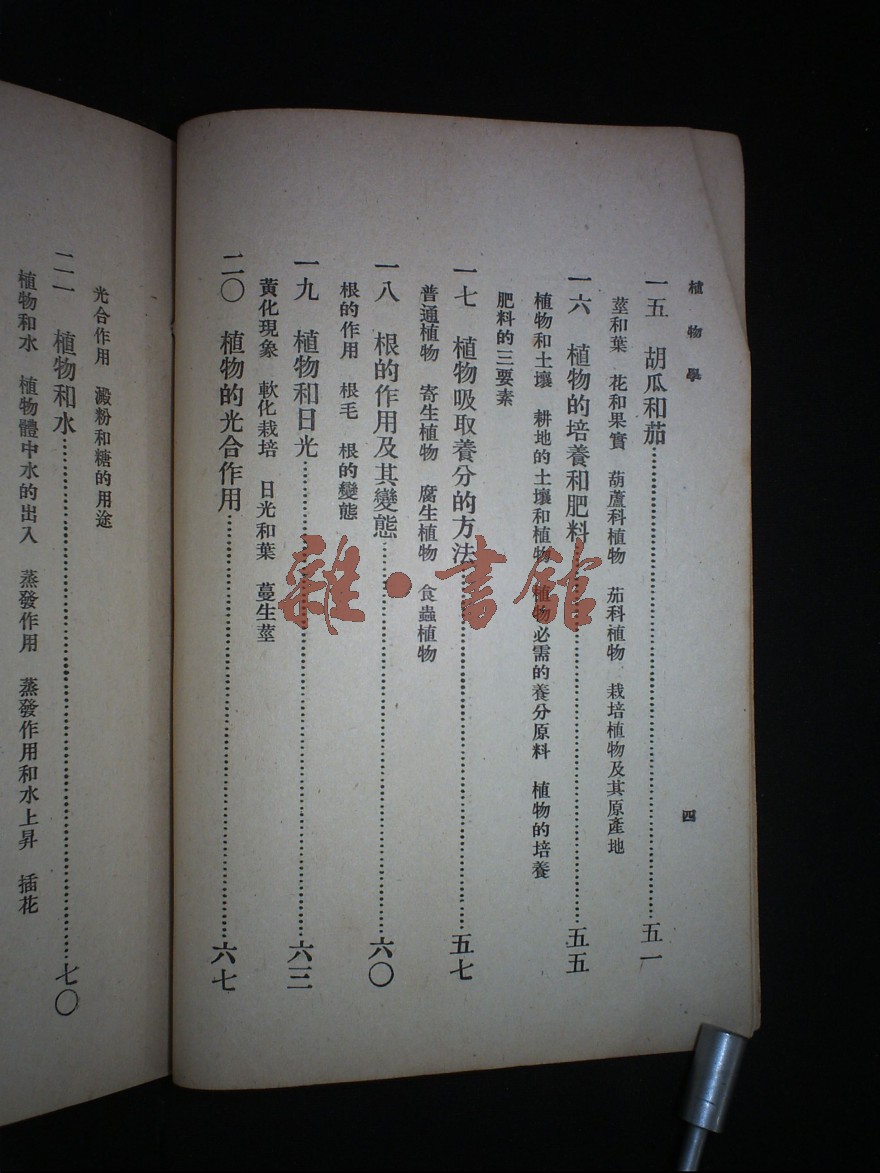 植物學
四
一五　胡瓜和茄……五一
莖和葉　花和果實　葫蘆科植物　茄科植物　栽培植物及其原產地
一六　植物的培養和肥料……五五
植物和土壤　耕地的土壤和植物　植物必需的養分原料　植物的培養
肥料的三要素
一七　植物吸取養分的方法……五七
普通植物　寄生植物　腐生植物　食蟲植物
一八　根的作用及其變態……六〇
根的作用　根毛　根的變態
一九　植物和日光……六三
黃化現象　軟化栽培　日光和葉　蔓生莖
二〇　植物的光合作用……六七
光合作用　澱粉和糖的用途
二一　植物和水……七〇
植物和水　植物體中水的出入　蒸發作用　蒸發作用和水上昇　插花
雜·書館